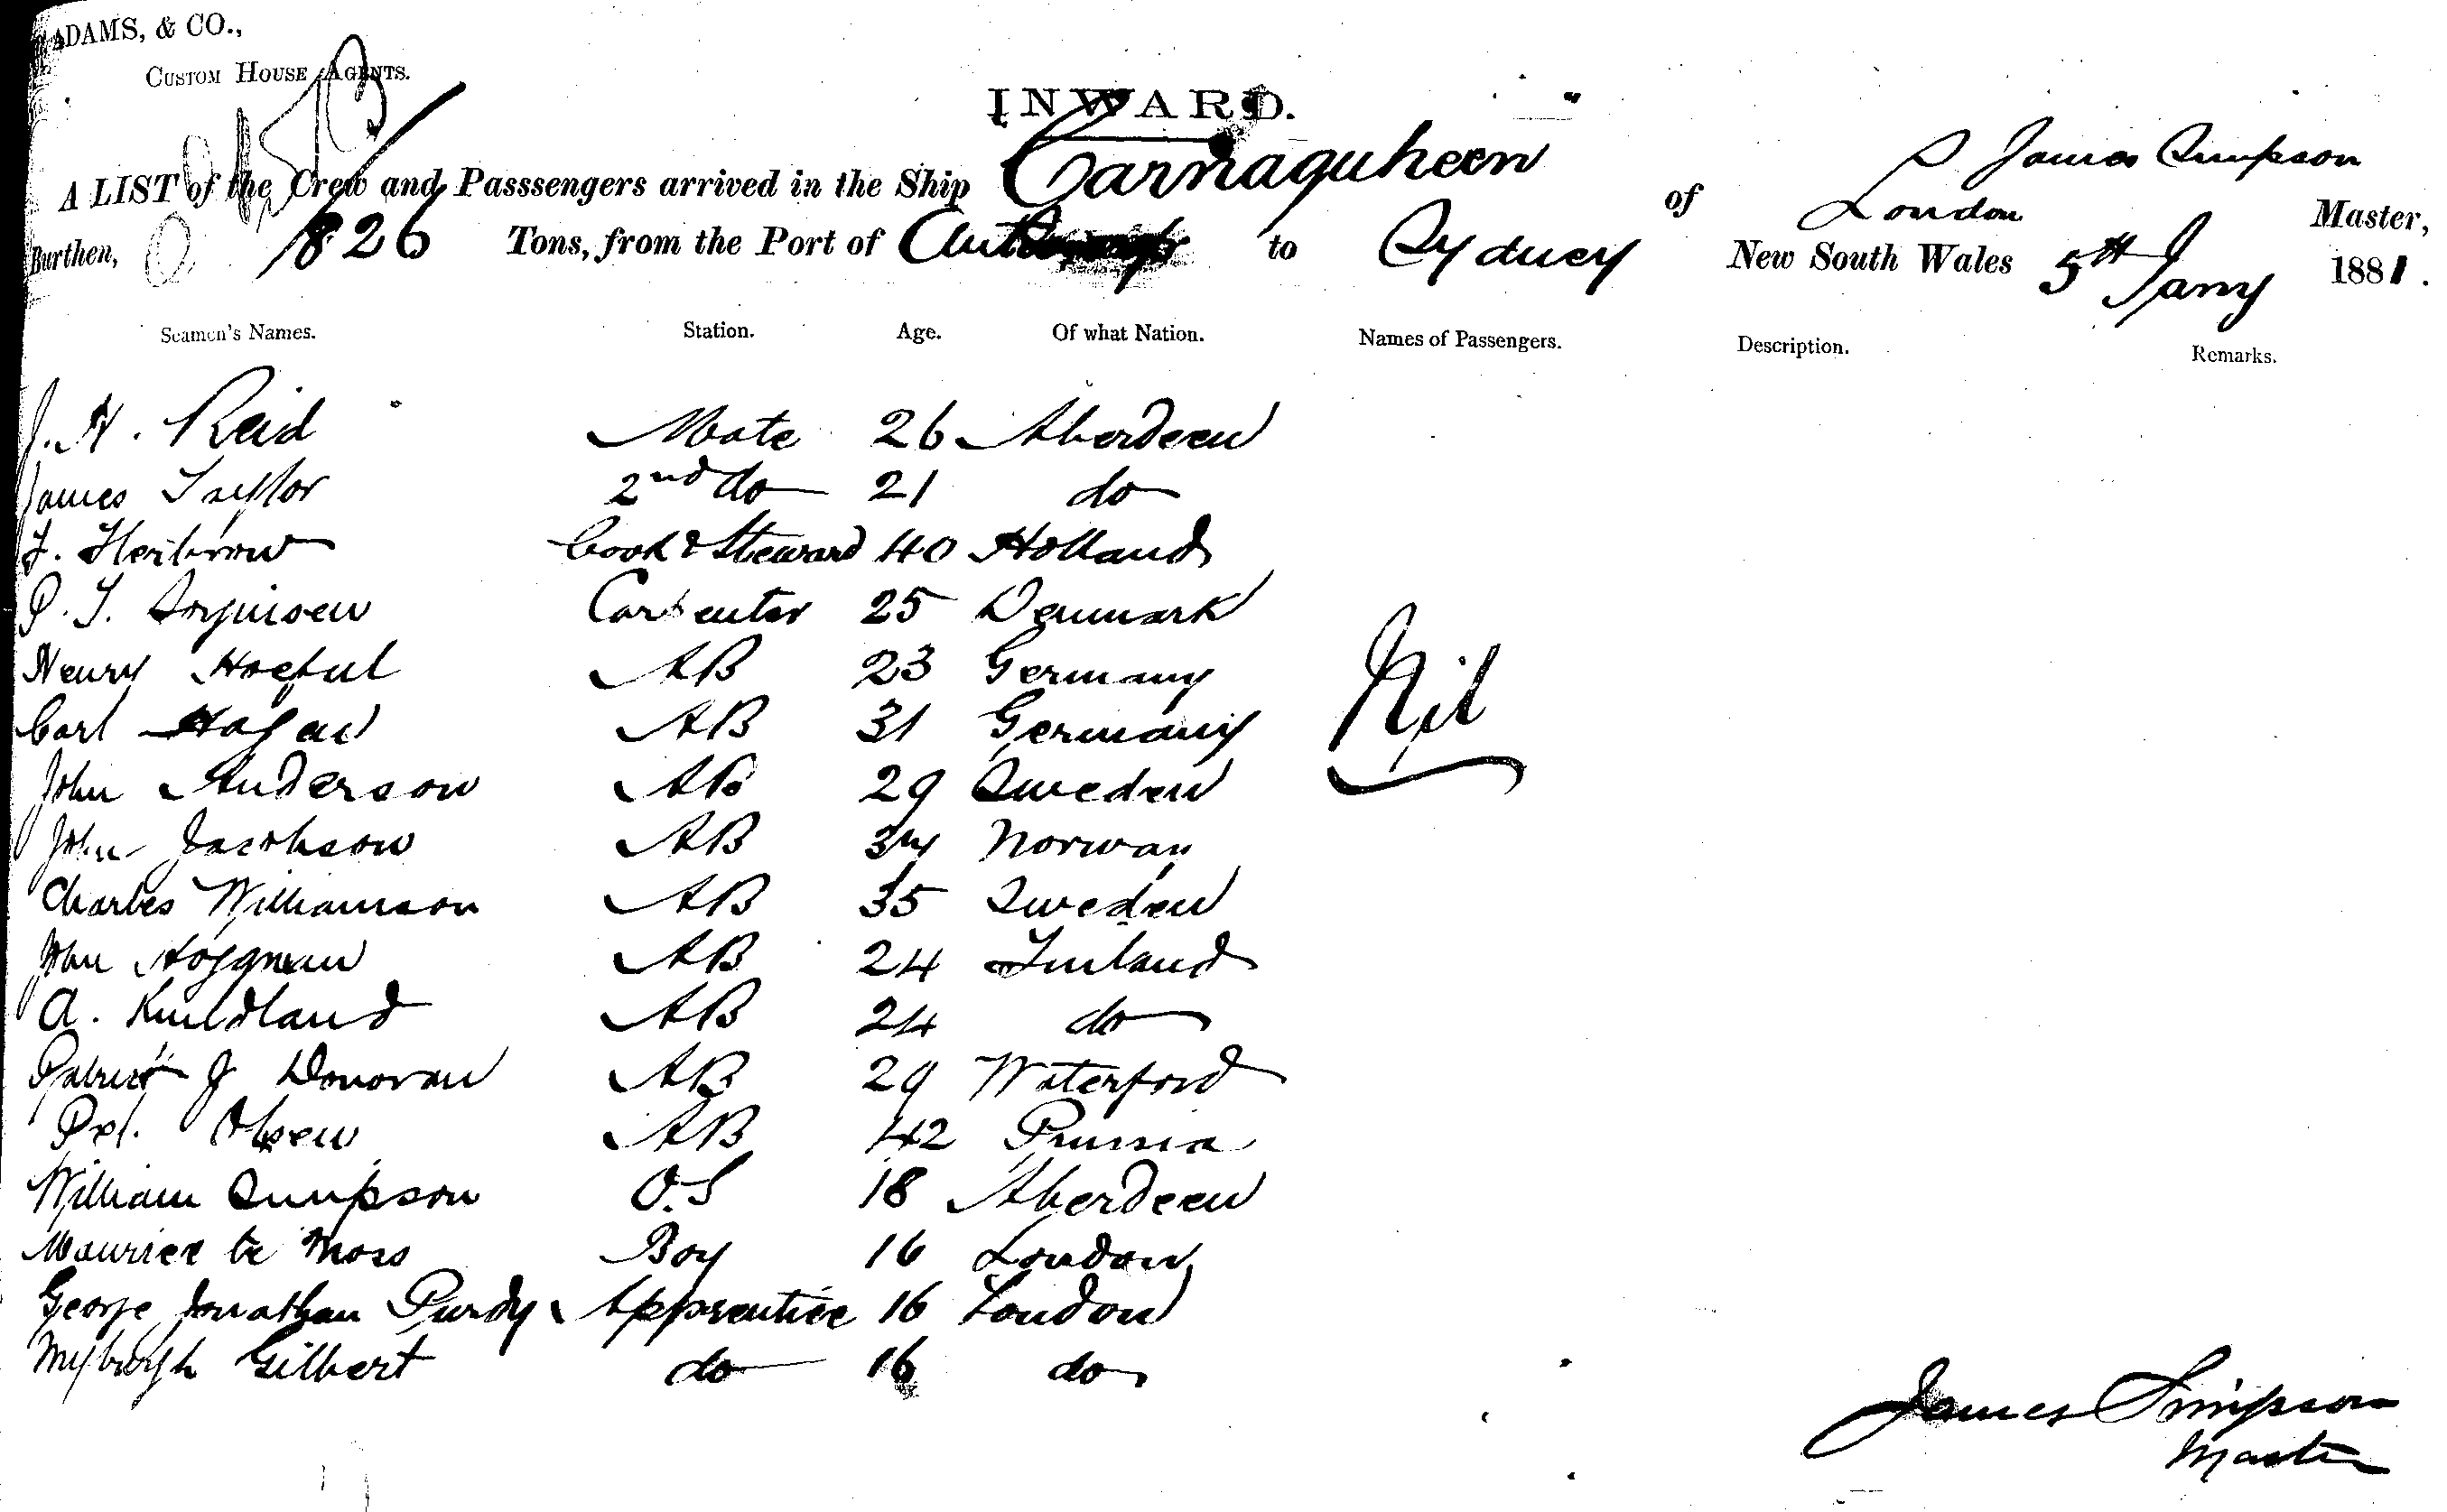 ADAMS, & CO.,
CUSTOM HOUSE AGENTS.
INWARD.
A LIST of the Crew and Passsengers arrived in the Ship Carnaquheen of London James Simpson Master,
Burthen, 826 Tons, from the Port of to Sydney New South Wales 5th Jany 1881.
Seamen's Names. Station. Age. Of what Nation. Names of Passengers. Description. Remarks.
J. H. Reid Mate 26 Aberdeen
James Taylor 2nd do 21 do
Cook & Steward 40 Holland
P. J. Carpenter 25 Denmark
Henry AB 23 Germany
Carl Hagen AB 31 Germany
Nil
John Anderson AB 29 Sweden
John Jacobson AB 34 Norway
Charles Williamson AB 35 Sweden
AB 24 Finland
A. AB 24 do
Patrick J Donovan AB 29 Waterford
Olsen AB 42 Prussia
William Simpson O.S 18 Aberdeen
Maurice Moss Boy 16 London
George Jonathan Purdy Apprentice 16 London
Myburgh Gilbert do 16 do
James Simpson
Master